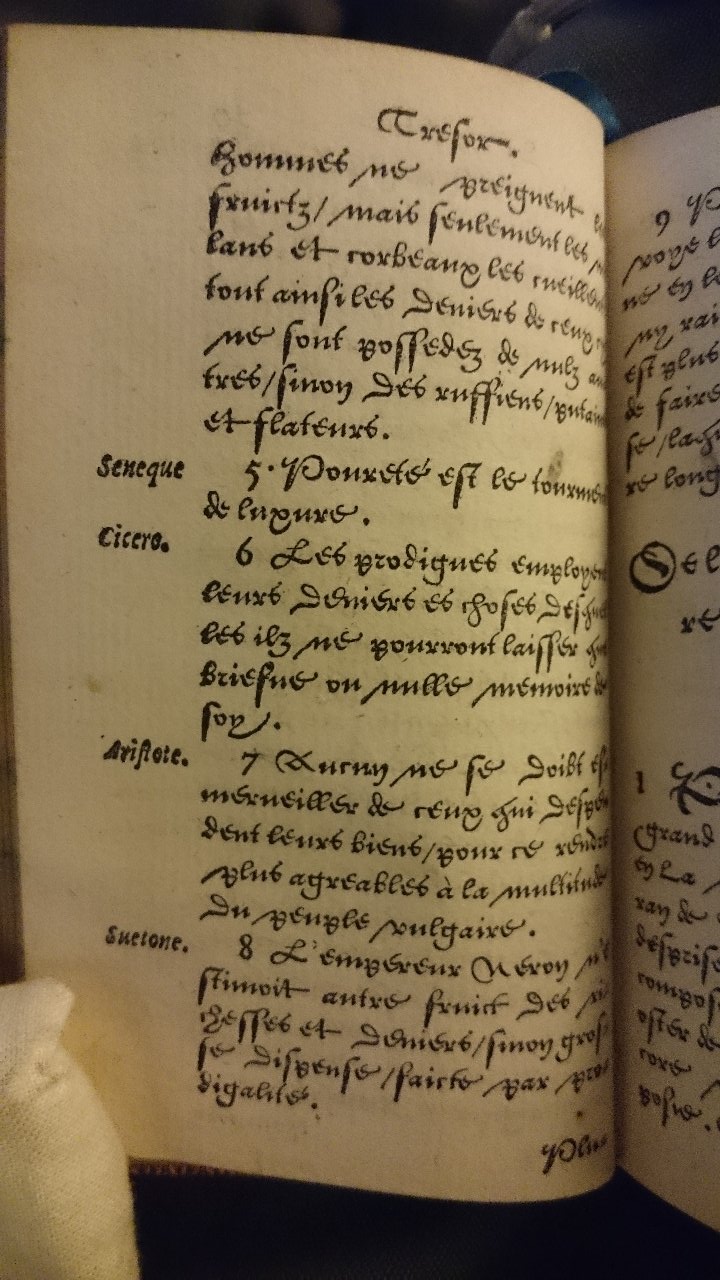 Tresor.
hommes ne preignent
fruictz/ mais seulement les
lans et corbeaux les cueillen
tout ainsi les deniers de ceux
ne sont possedez de nulz au
tres/sinon des ruffiens/putain
et flateurs.
Seneque
5. Poureté est le tourmen
de luxure.
Cicero.
6 Les prodigues employen
leurs deniers es choses desq
les ilz ne pourront laisser q
briefue ou nulle memoire de
soy.
Aristote.
7 Aucun ne se doibt es
merueiller de ceux qui despen
dent leurs biens/pour ce rendre
plus agreables à la multitude
du peuple vulgaire.
Suetone.
8 L'empereur Neron n'e
stimoit autre fruict des ri
chesses et deniers/sinon gros
se dispense/faicte par pro
digalité.
Plus
9 P
voye l
ne en le
ny rai
est plus
de faire
se/lach
re long
De l
re
1
grand
en la
ray de
desprise
compos
oster de
core
posie.